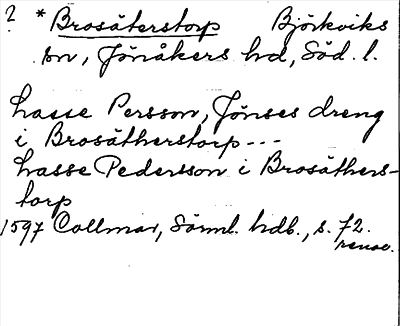 ? * Brosäterstorp Björkviks
sn, Jönåkers hd, Söd. l.
Lasse Persson, Jönses dreng
i Brosätherstorp---
Lasse Pedersson i Brosäthers-
torp
1597 Collmar, Sörml. hdb., s. 72.
renov.